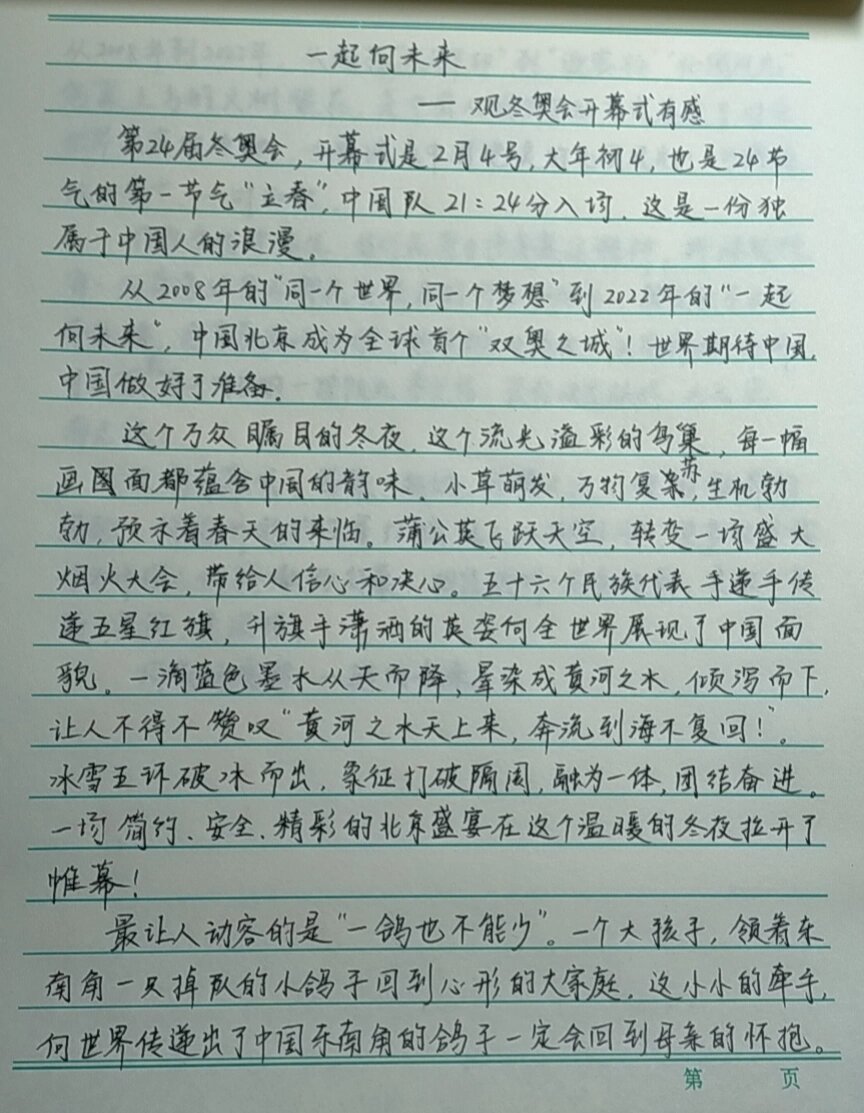 一起向未来
— 观冬奥会开幕式有感
第24届冬奥会,开幕式是2月4号,大年初4,也是24节
气的第一节气“立春”,中国队21:24分入场,这是一份独
属于中国人的浪漫。
从2008年的“同一个世界,同一个梦想”到2022年的“一起
向未来”,中国北京成为全球首个“双奥之城”!世界期待中国,
中国做好了准备。
这个万众瞩目的冬夜,这个流光溢彩的鸟巢,每一幅
画图面都蕴含中国的韵味。小草萌发,万物复苏,生机勃
勃,预示着春天的来临。蒲公英飞跃天空,转变一场盛大
烟火大会,带给人信心和决心。五十六个民族代表手递手传
递五星红旗,升旗手潇洒的英姿向全世界展现了中国面
貌。一滴蓝色墨水从天而降,晕染成黄河之水,倾泻而下,
让人不得不赞叹“黄河之水天上来,奔流到海不复回!”。
冰雪五环破冰而出,象征打破隔阂,融为一体,团结奋进。
一场简约、安全、精彩的北京盛宴在这个温暖的冬夜拉开了
帷幕!
最让人动容的是“一鸽也不能少”。一个大孩子,领着东
南角一只掉队的小鸽子回到心形的大家庭,这小小的牵手,
向世界传递出了中国东南角的鸽子一定会回到母亲的怀抱。
第 页